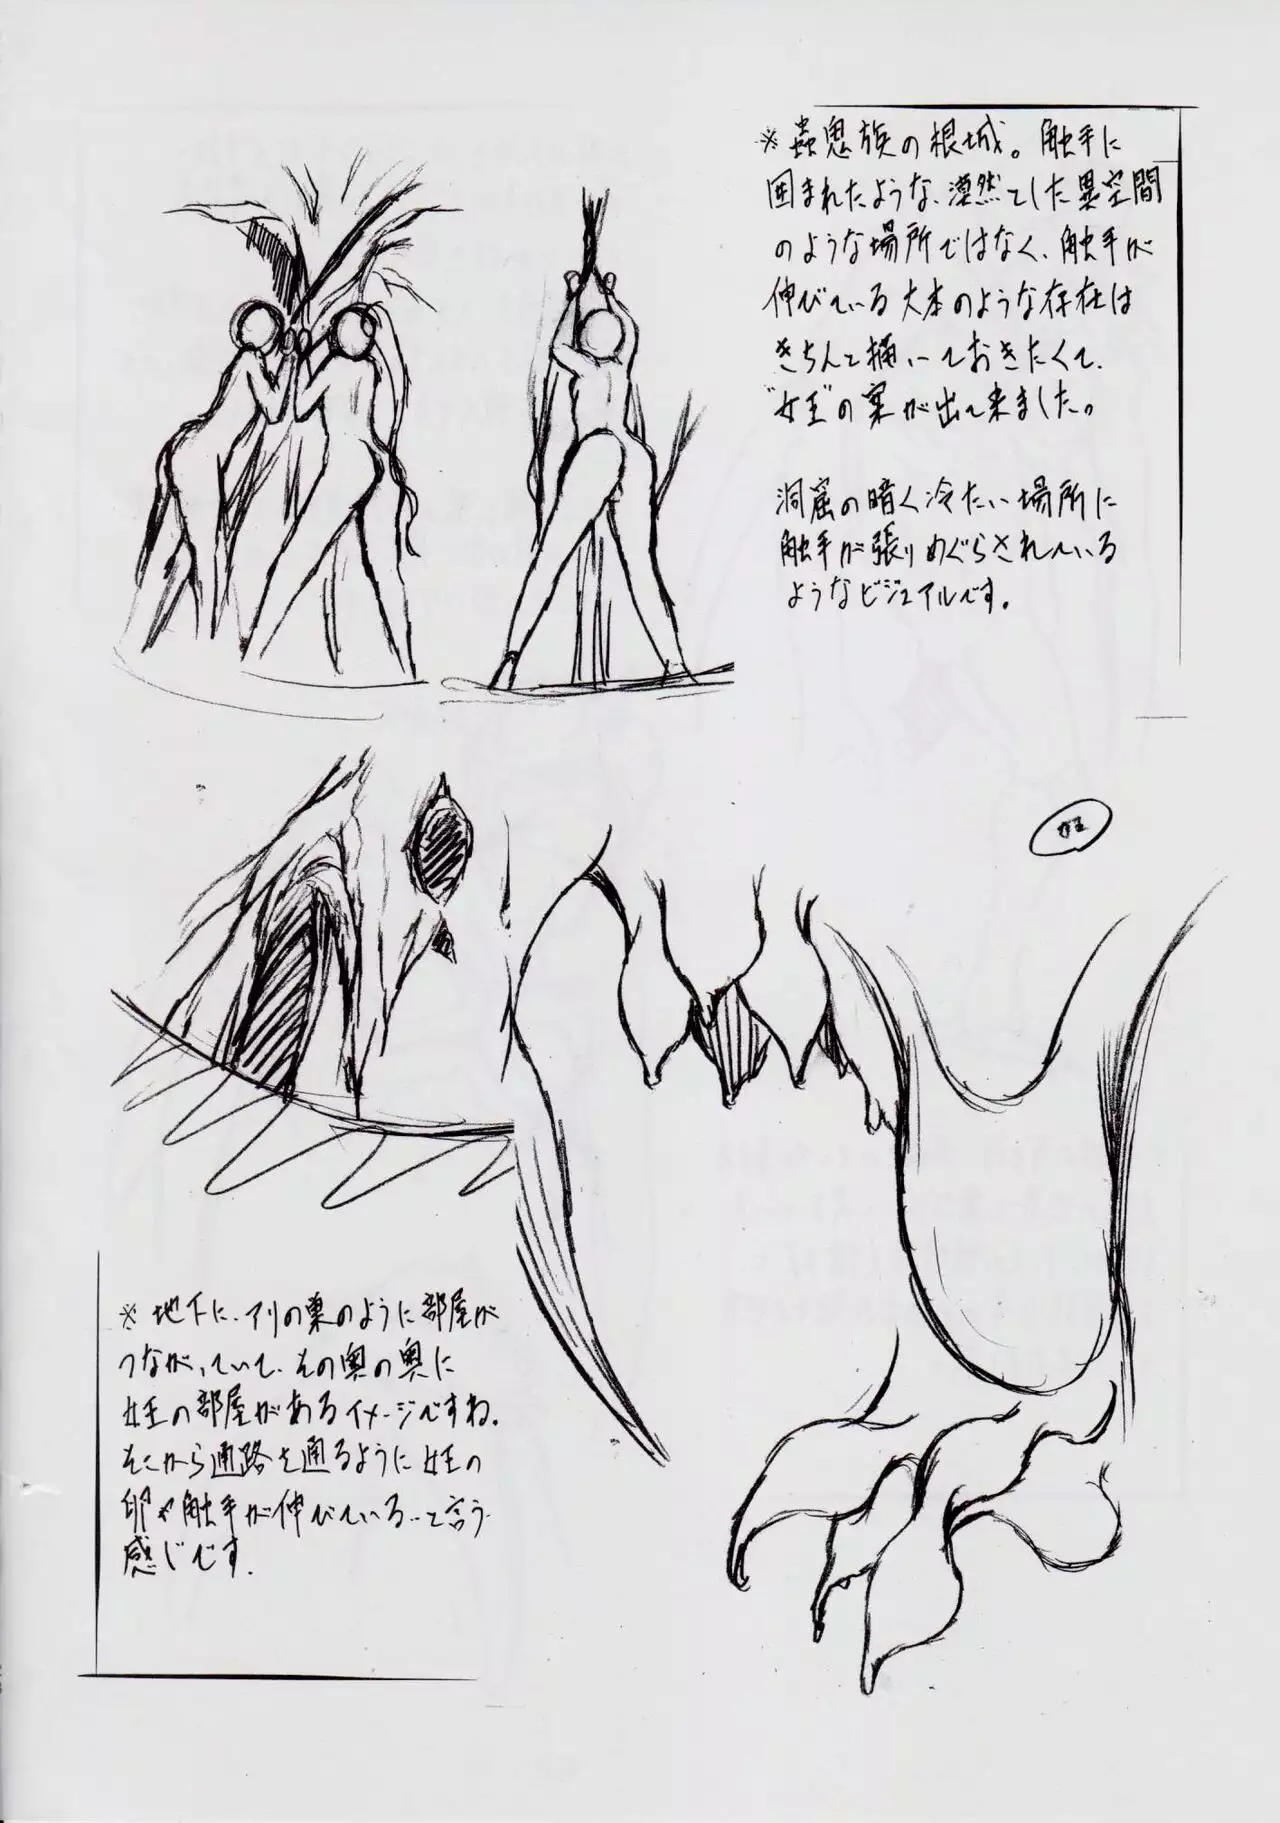 ※蟲鬼族の根城。触手に
囲まれたような、漠然とした異空間
のような場所ではなく、触手が
伸びている大本のような存在は
きちんと描いておきたくて、
"女王"の案が出て来ました。
洞窟の暗く冷たい場所に
触手が張りめぐらされている
ようなビジュアルです。
女王
※地下に、アリの巣のように部屋が
つながっていて、その奥の奥に
女王の部屋があるイメージですね。
そこから通路を通るように女王の
卵や触手が伸びている…と言う
感じです。